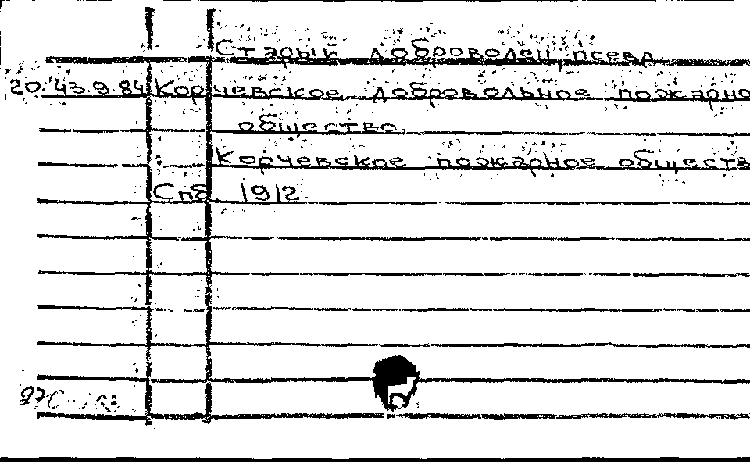 Старый доброволец псевд
20.43.9.84 Корчевское добровольное пожарно
общество
Корчевское пожарное обществ
Спб. 1912